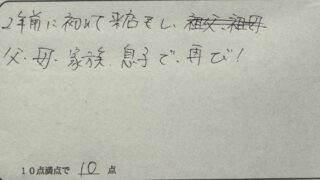 2年前に初めて来店をし、祖父、祖母
父・母・家族、息子で、再び!
10点満点で 10 点